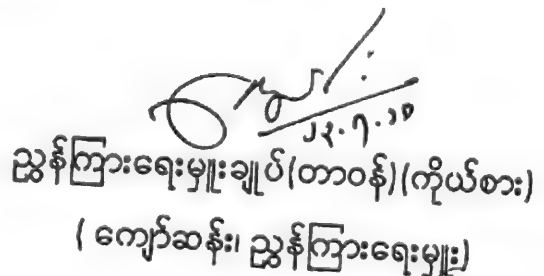 ၂၃.၇.၁၈
ညွှန်ကြားရေးမှူးချုပ်(တာဝန်)(ကိုယ်စား)
( ကျော်ဆန်း၊ ညွှန်ကြားရေးမှူး)